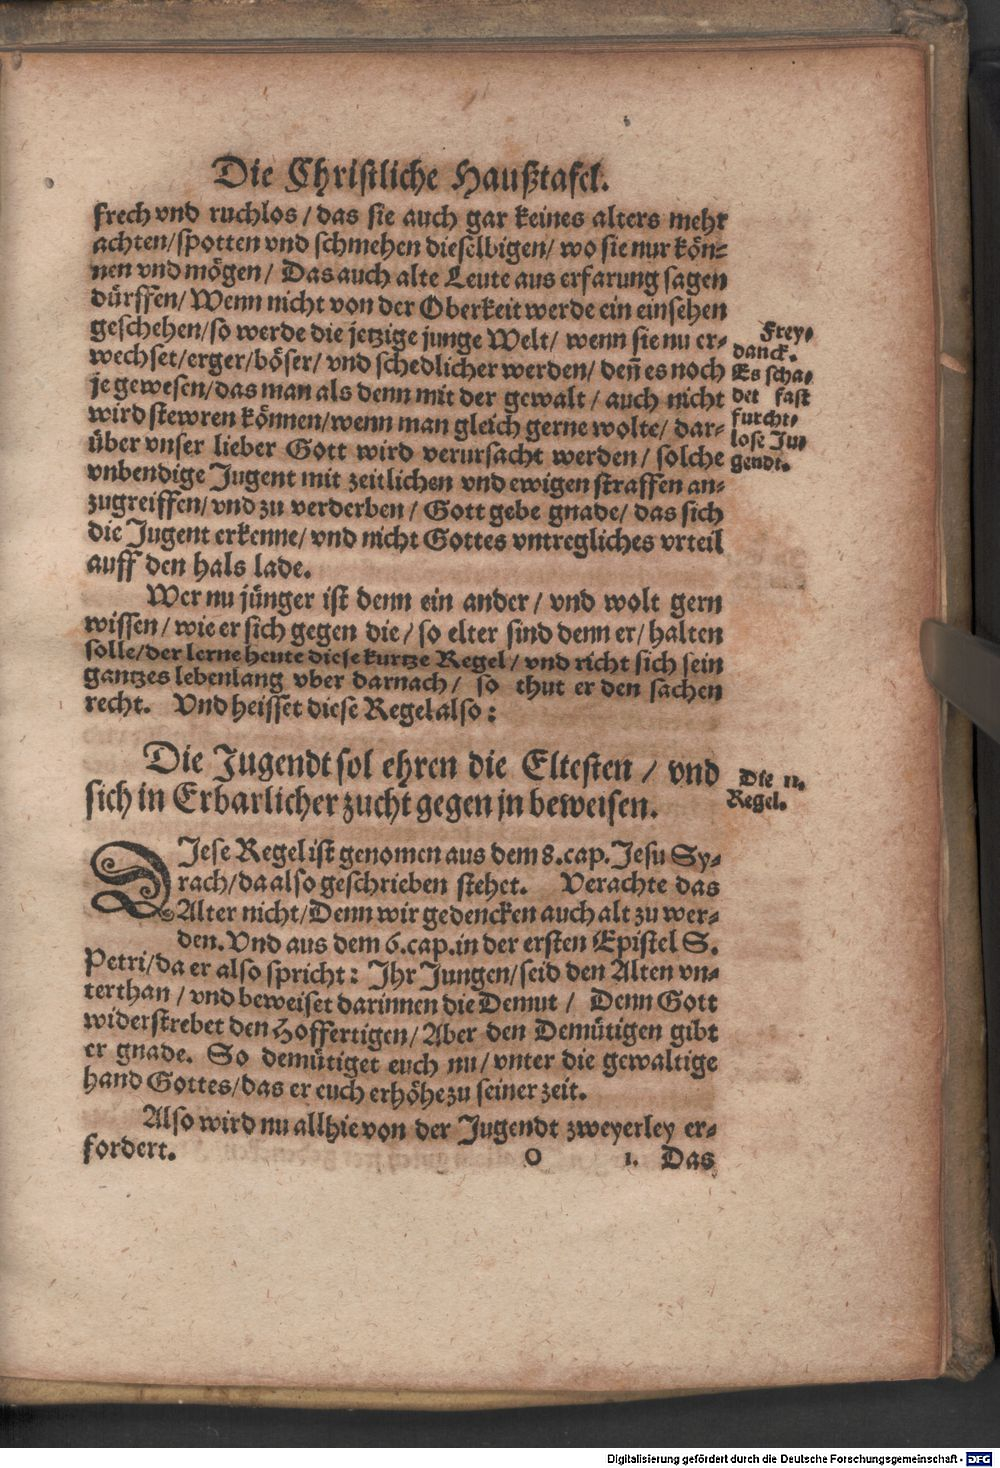 Die Christliche Haußtafel.
frech vnd ruchlos / das sie auch gar keines alters mehr
achten/spotten vnd schmehen dieselbigen/ wo sie nur kön=
nen vnd mögen / Das auch alte Leute aus erfarung sagen
dürffen/ Wenn nicht von der Oberkeit werde ein einsehen
geschehen/so werde die jetzige junge Welt/ wenn sie nu er=
wechset/erger/böser/ vnd schedlicher werden/ deñ es noch
je gewesen/das man als denn mit der gewalt / auch nicht
wird stewren können/wenn man gleich gerne wolte/ dar=
über vnser lieber Gott wird verursacht werden/ solche
vnbendige Jugent mit zeitlichen vnd ewigen straffen an=
zugreiffen/ vnd zu verderben / Gott gebe gnade/ das sich
die Jugent erkenne/ vnd nicht Gottes vntregliches vrteil
auff den hals lade.
Frey=
danck.
Es scha=
det fast
furcht=
lose Ju=
gendt.
Wer nu jünger ist denn ein ander / vnd wolt gern
wissen/ wie er sich gegen die/ so elter sind denn er/ halten
solle/der lerne heute diese kurtze Regel/ vnd richt sich sein
gantzes lebenlang vber darnach/ so thut er den sachen
recht. Vnd heisset diese Regel also:
Die Jugendt sol ehren die Eltesten / vnd
sich in Erbarlicher zucht gegen jn beweisen.
Die 11.
Regel.
DJese Regel ist genomen aus dem 8.cap. Jesu Sy=
rach/da also geschrieben stehet. Verachte das
Alter nicht/Denn wir gedencken auch alt zu wer=
den. Vnd aus dem 6.cap.in der ersten Epistel S.
Petri/da er also spricht: Jhr Jungen/seid den Alten vn=
terthan / vnd beweiset darinnen die Demut / Denn Gott
widerstrebet den Hoffertigen/ Aber den Demütigen gibt
er gnade. So demütiget euch nu/ vnter die gewaltige
hand Gottes/das er euch erhöhe zu seiner zeit.
Also wird nu allhie von der Jugendt zweyerley er=
fordert.
O 1. Das
Digitalisierung gefördert durch die Deutsche Forschungsgemeinschaft - DFG